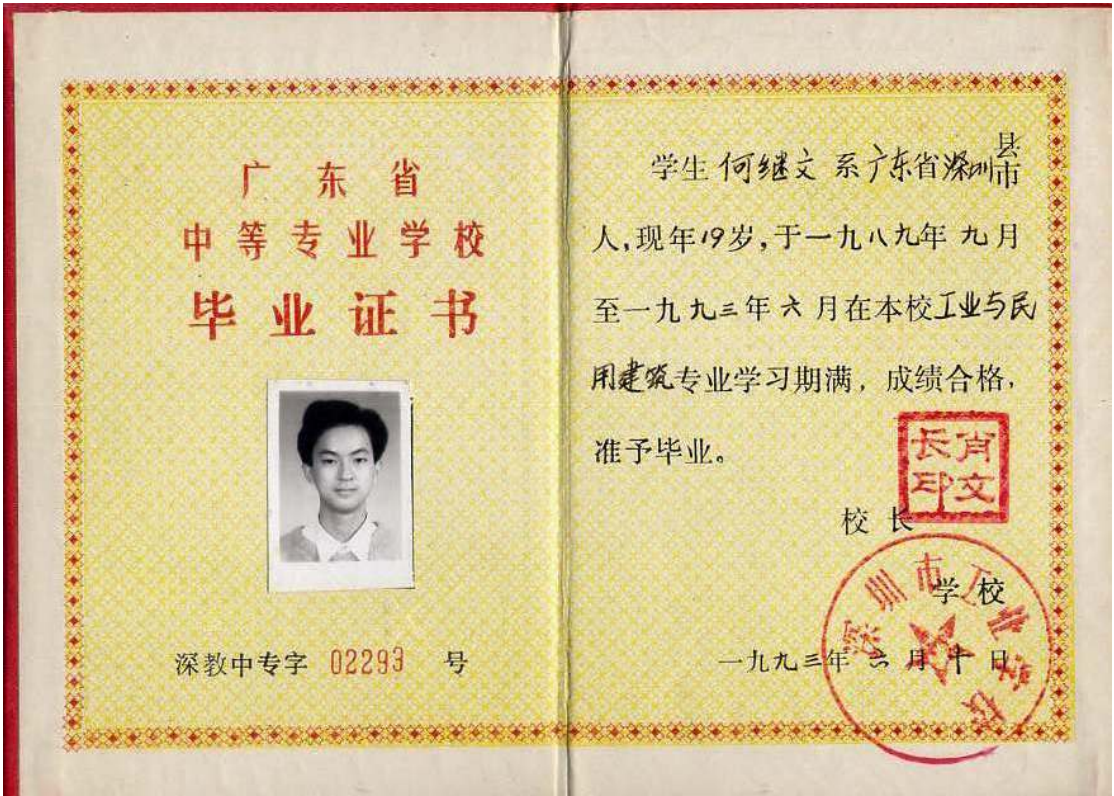 广东省
中等专业学校
毕业证书
深教中专字 02293 号
学生何继文系广东省深圳县市
人,现年19岁,于一九八九年九月
至一九九三年六月在本校工业与民
用建筑专业学习期满，成绩合格，
准予毕业。
校长
肖文长印
学校
一九九三年六月十日
深圳市工业学校